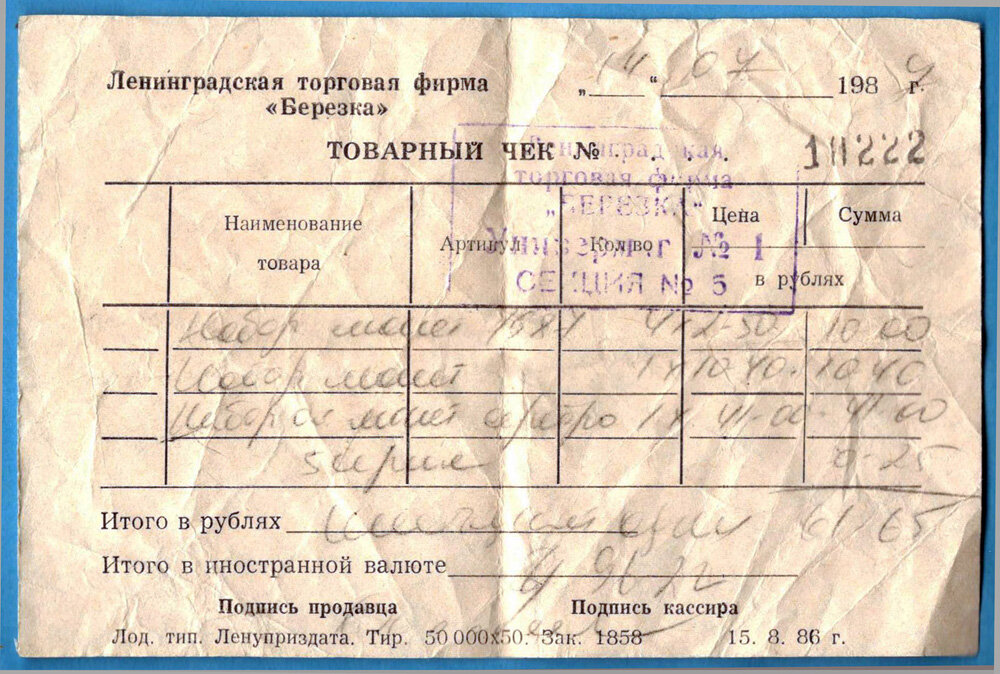 Ленинградская торговая фирма
«Березка»
„14“ 07 1989 г.
ТОВАРНЫЙ ЧЕК № . . . .
Ленинградская
торговая фирма
„БЕРЕЗКА“
Универмаг № 1
СЕКЦИЯ № 5
Наименование товара
Артикул
Кол-во
Цена
Сумма
в рублях
Набор монет 4х2-50 10 00
Набор монет 1х10-40. 10-40
Набор монет серебро 1х 41-00- 41-00
0-25
Итого в рублях 61 65
Итого в иностранной валюте
Подпись продавца Подпись кассира
Лод. тип. Ленуприздата. Тир. 50 000х50. Зак. 1858 15. 8. 86 г.